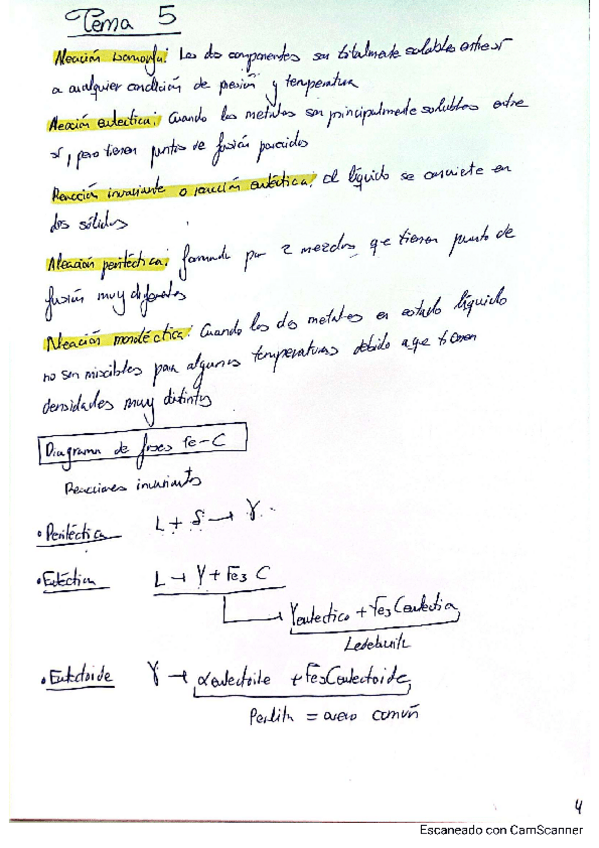 Tema 5
Aleación isomorfa: Los dos componentes son totalmente solubles entre sí
a cualquier condición de presión y temperatura
Aleación eutectica: Cuando los metales son principalmente solubles entre
sí, pero tienen puntos de fusión parecidos
Reacción invariante o reacción eutéctica: el líquido se convierte en
dos sólidos
Aleación peritéctica: formada por 2 mezclas que tienen punto de
fusión muy diferentes
Aleación monotéctica: Cuando los dos metales en estado líquido
no son miscibles para algunas temperaturas debido a que tienen
densidades muy distintos
Diagrama de fases Fe-C
Reacciones invariants
• Peritéctica L + δ → γ
• Eutéctica L → γ + Fe3 C
γeutectico + Fe3Ceutectia
Ledeburita
• Eutectoide γ → αeutectoide + Fe3Ceutectoide
Perlita = acero común
4
Escaneado con CamScanner